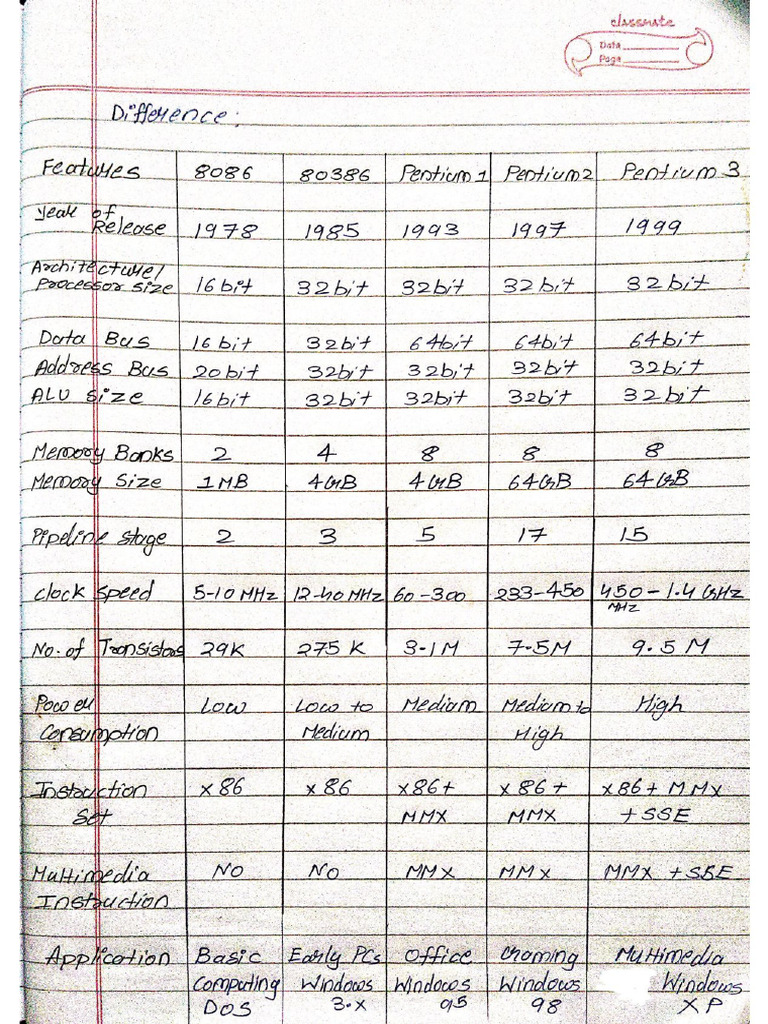 classmate
Date
Page
Difference:
Features 8086 80386 Pentium 1 Pentium 2 Pentium 3
Year of
Release 1978 1985 1993 1997 1999
Architecture/
Processor size 16 bit 32 bit 32 bit 32 bit 32 bit
Data Bus 16 bit 32 bit 64 bit 64 bit 64 bit
Address Bus 20 bit 32 bit 32 bit 32 bit 32 bit
ALU size 16 bit 32 bit 32 bit 32 bit 32 bit
Memory Banks 2 4 8 8 8
Memory Size 1 MB 4 GB 4 GB 64 GB 64 GB
Pipeline stage 2 3 5 17 15
Clock speed 5-10 MHz 12-40 MHz 60-300 233-450 450-1.4 GHz
MHz
No. of Transistors 29K 275 K 3.1M 7.5M 9.5 M
Power Low Low to Medium Medium to High
Consumption Medium High
Instruction x86 x86 x86+ x86+ x86+ MMX
Set MMX MMX + SSE
Multimedia NO NO MMX MMX MMX + SSE
Instruction
Application Basic Early PCs Office Gaming Multimedia
Computing Windows Windows Windows Windows
DOS 3.x 95 98 XP